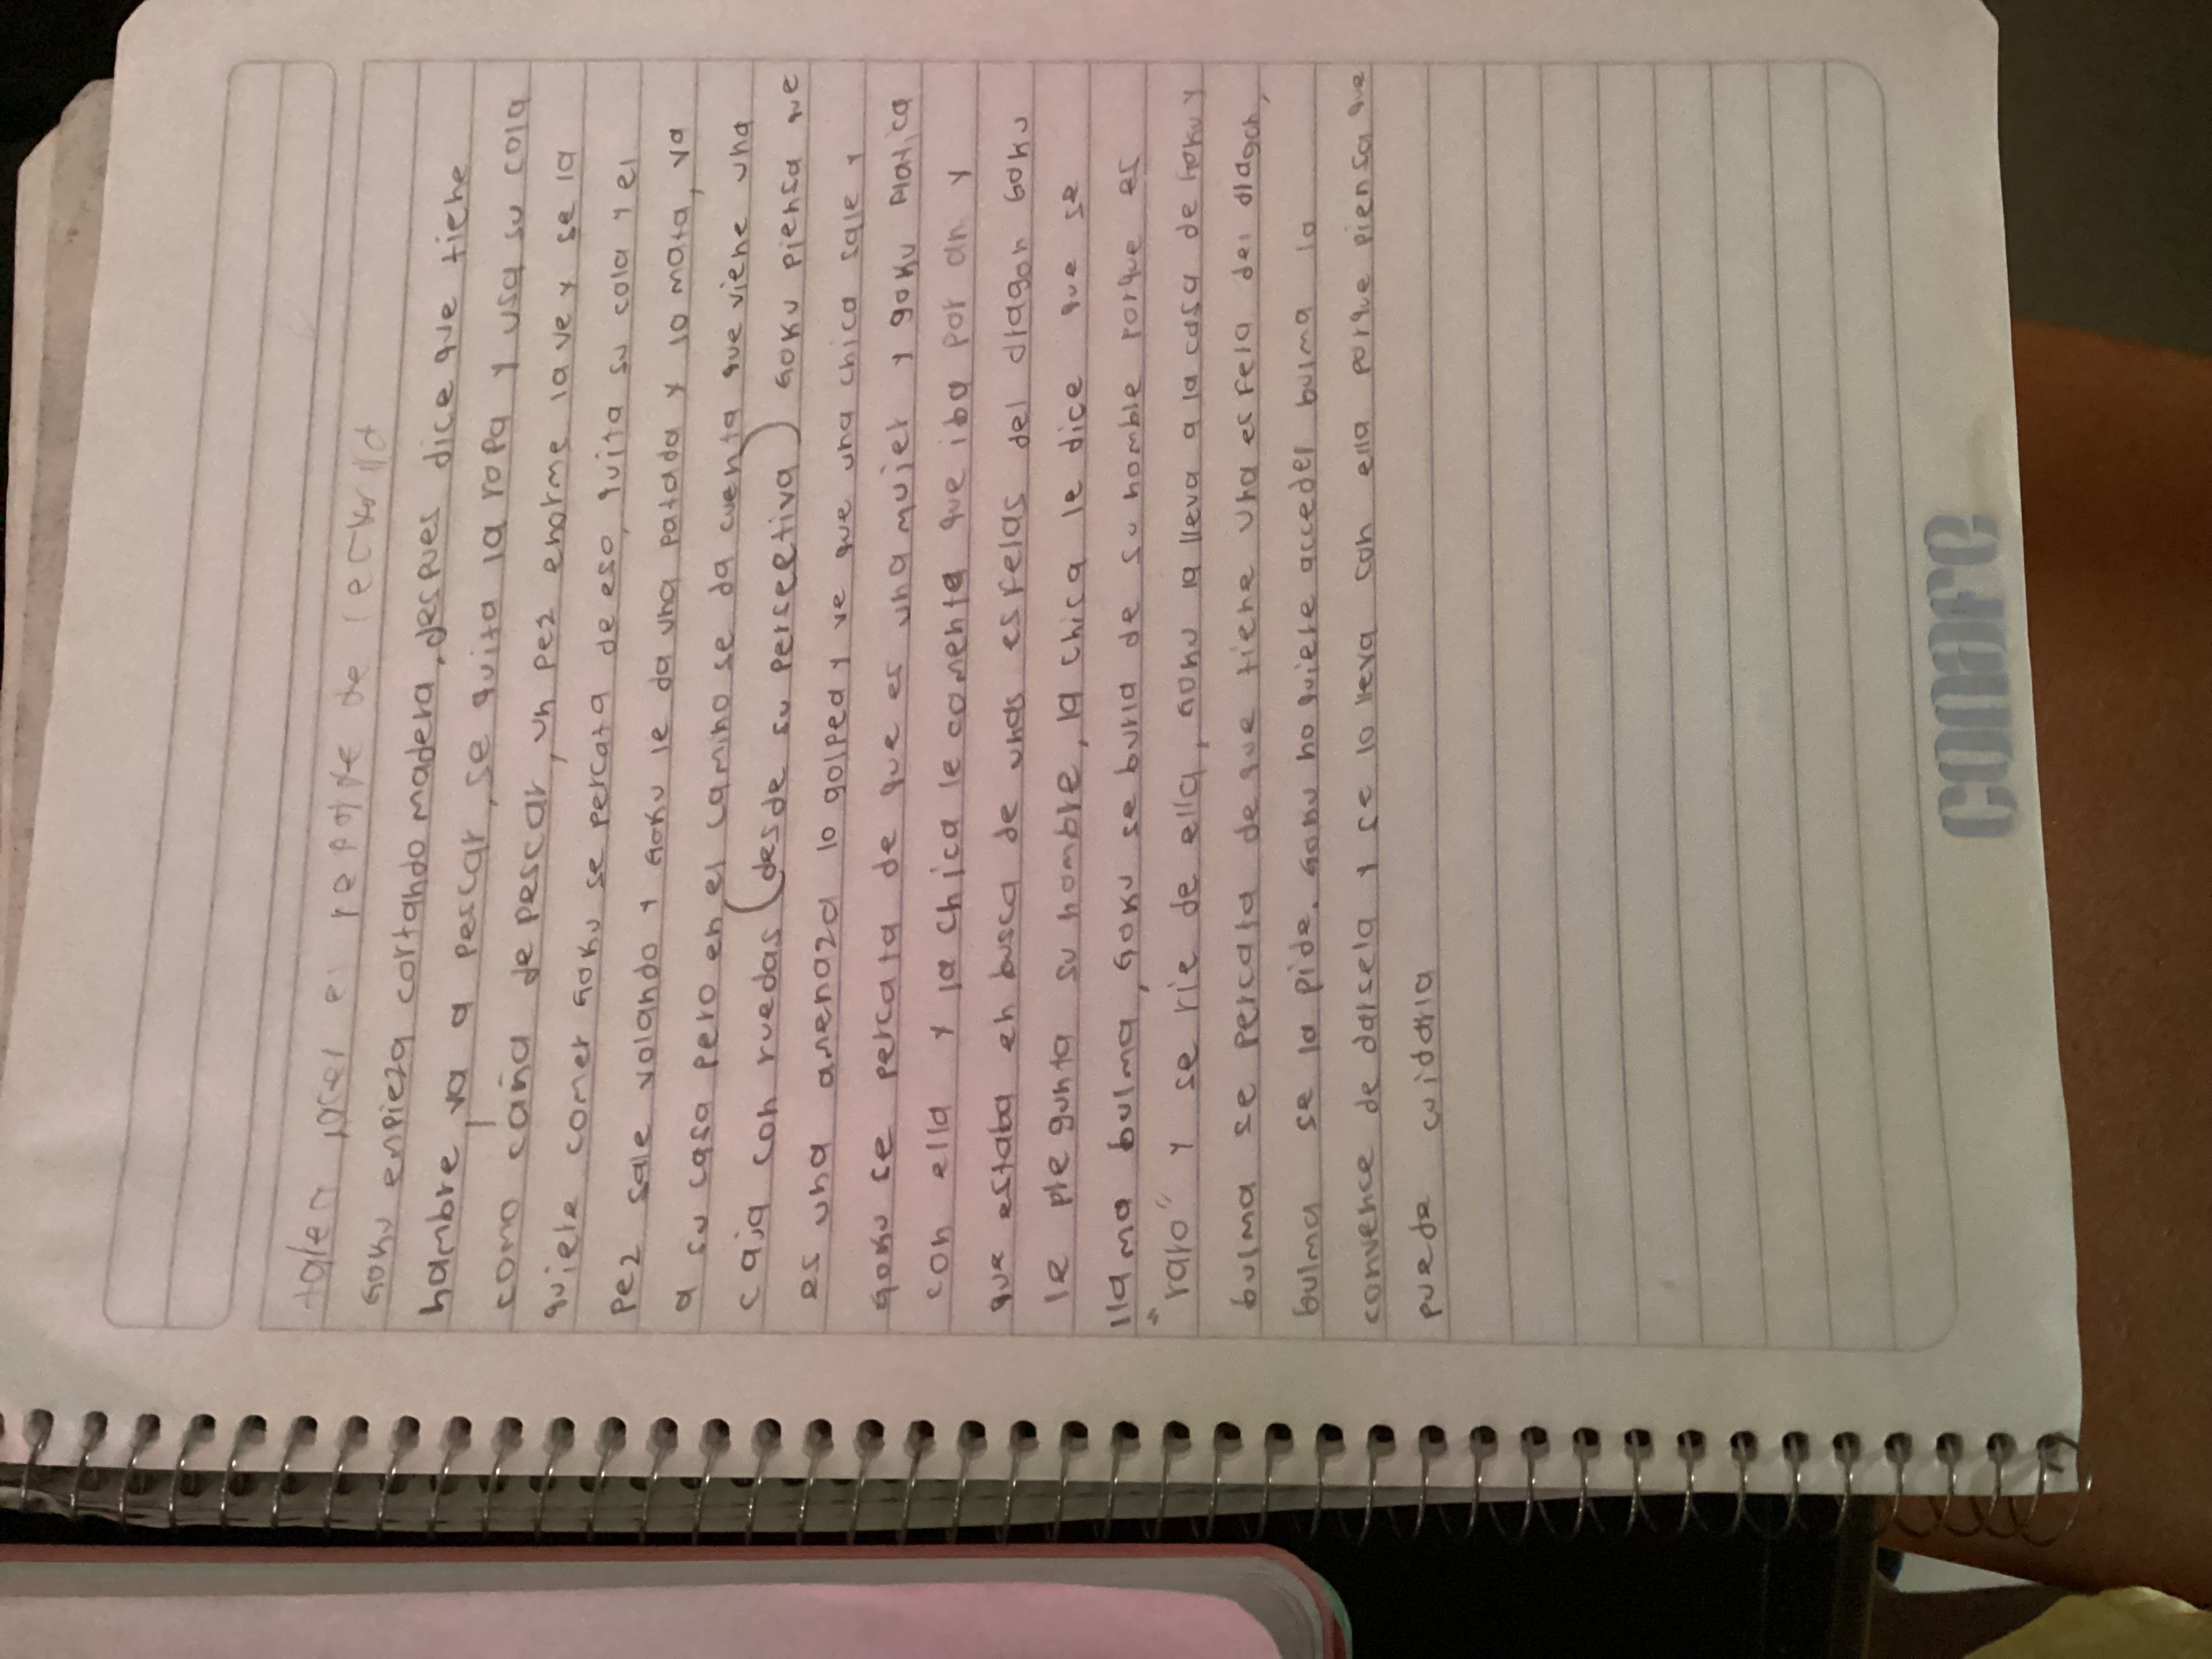 tarea: hacer el reporte de lectura
Goku empieza cortando madera, despues dice que tiene
hambre, va a pescar, se quita la ropa y usa su cola
como caña de pescar, un pez enorme la ve y se la
quiere comer Goku se percata de eso, quita su cola y el
pez sale volando y Goku le da una patada y lo mata, va
a su casa pero en el camino se da cuenta que viene una
caja con ruedas (desde su perscetiva) Goku piensa que
es una amenaza lo golpea y ve que una chica sale y
Goku se percata de que es una mujer y goku platica
con ella y la chica le comenta que iba por ahi y
que estaba en busca de unas esferas del dragon Goku
le pregunta su nombre, la chica le dice que se
llama bulma, Goku se burla de su nombre porque es
"raro" y se rie de ella, Goku la lleva a la casa de Goku y
bulma se percata de que tiene una esfera del dragon,
bulma se la pide. Goku no quiere acceder bulma lo
convence de darsela y se lo lleva con ella porque piensa que
puede cuidarla
conafe